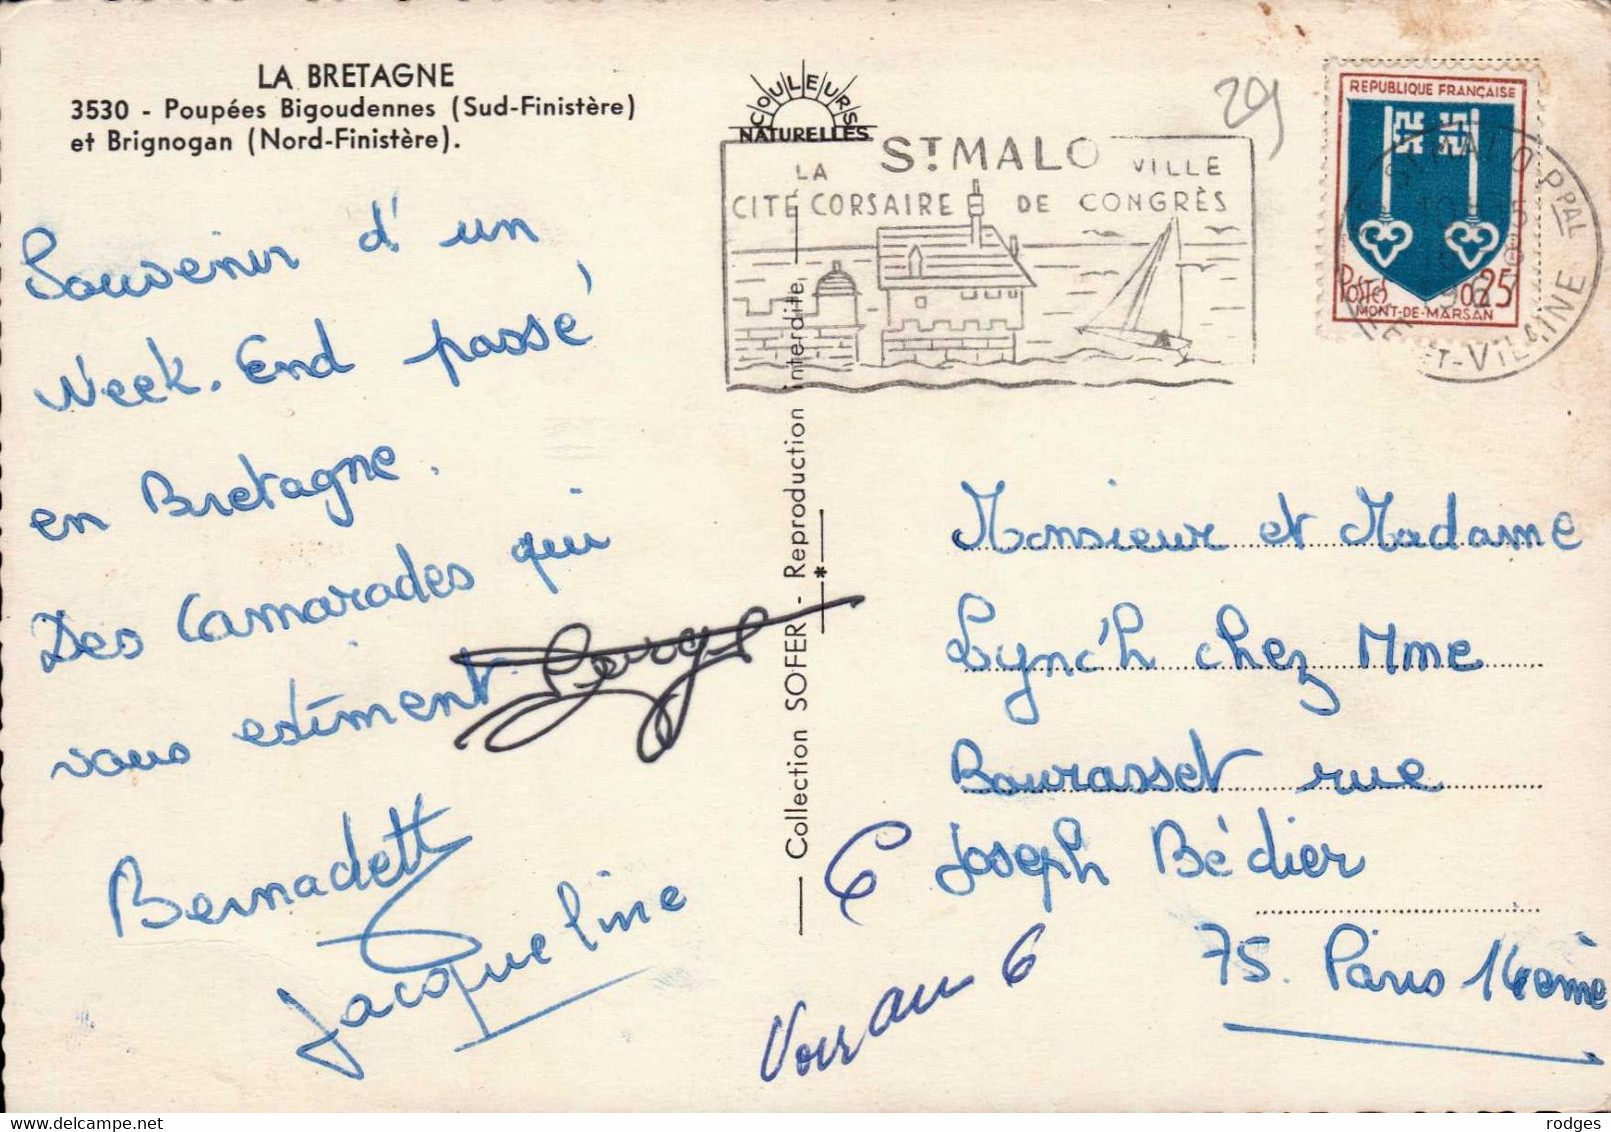 LA BRETAGNE
3530 - Poupées Bigoudennes (Sud-Finistère)
et Brignogan (Nord-Finistère).
COULEURS
NATURELLES
29
ST MALO
LA VILLE
CITÉ CORSAIRE DE CONGRÈS
REPUBLIQUE FRANÇAISE
POSTES 0,25
MONT-DE-MARSAN
ST MALO PPAL
ET-VILAINE
Souvenir d'un
Week-End passé
en Bretagne.
Des Camarades qui
vous estiment
Bernadett
Jacqueline
Collection SOFER - Reproduction interdite.
*
Monsieur et Madame
Lynch chez Mme
Bourasset rue
6 Joseph Bédier
75. Paris
Voir au 6
delcampe.net
rodges